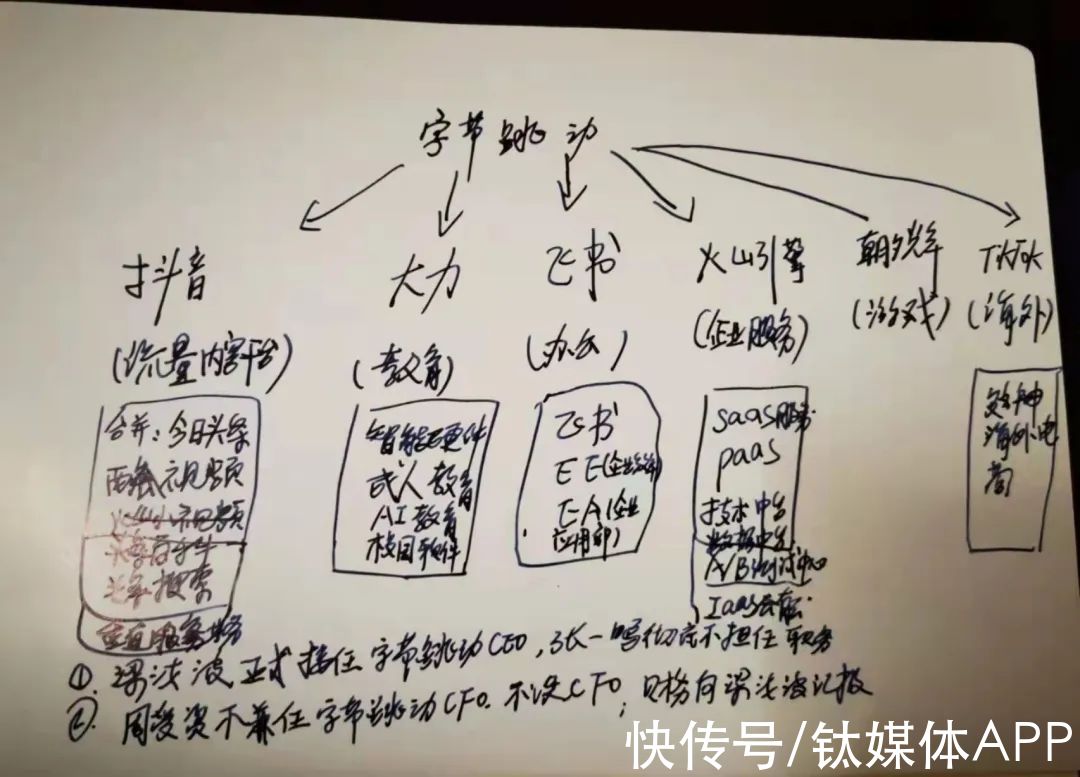 字节跳动
抖音
(流量内容平台)
合并:今日头条
西瓜视频
火山小视频
头条百科
头条搜索
垂直服务务
大力
(教育)
智能硬件
成人教育
AI教育
校园软件
飞书
(办公)
飞书
EE(企业效率)
EA(企业
应用部)
火山引擎
(企业服务)
SaaS服务
paas
技术中台
数据中台
A/B测试中心
Iaas云
朝夕光年
(游戏)
TikTok
(海外)
海外电
商
①. 梁汝波正式接任字节跳动CEO,张一鸣彻底不担任职务
②. 周受资不兼任字节跳动CFO.不设CFO,财务向梁汝波汇报
快传号/钛媒体APP